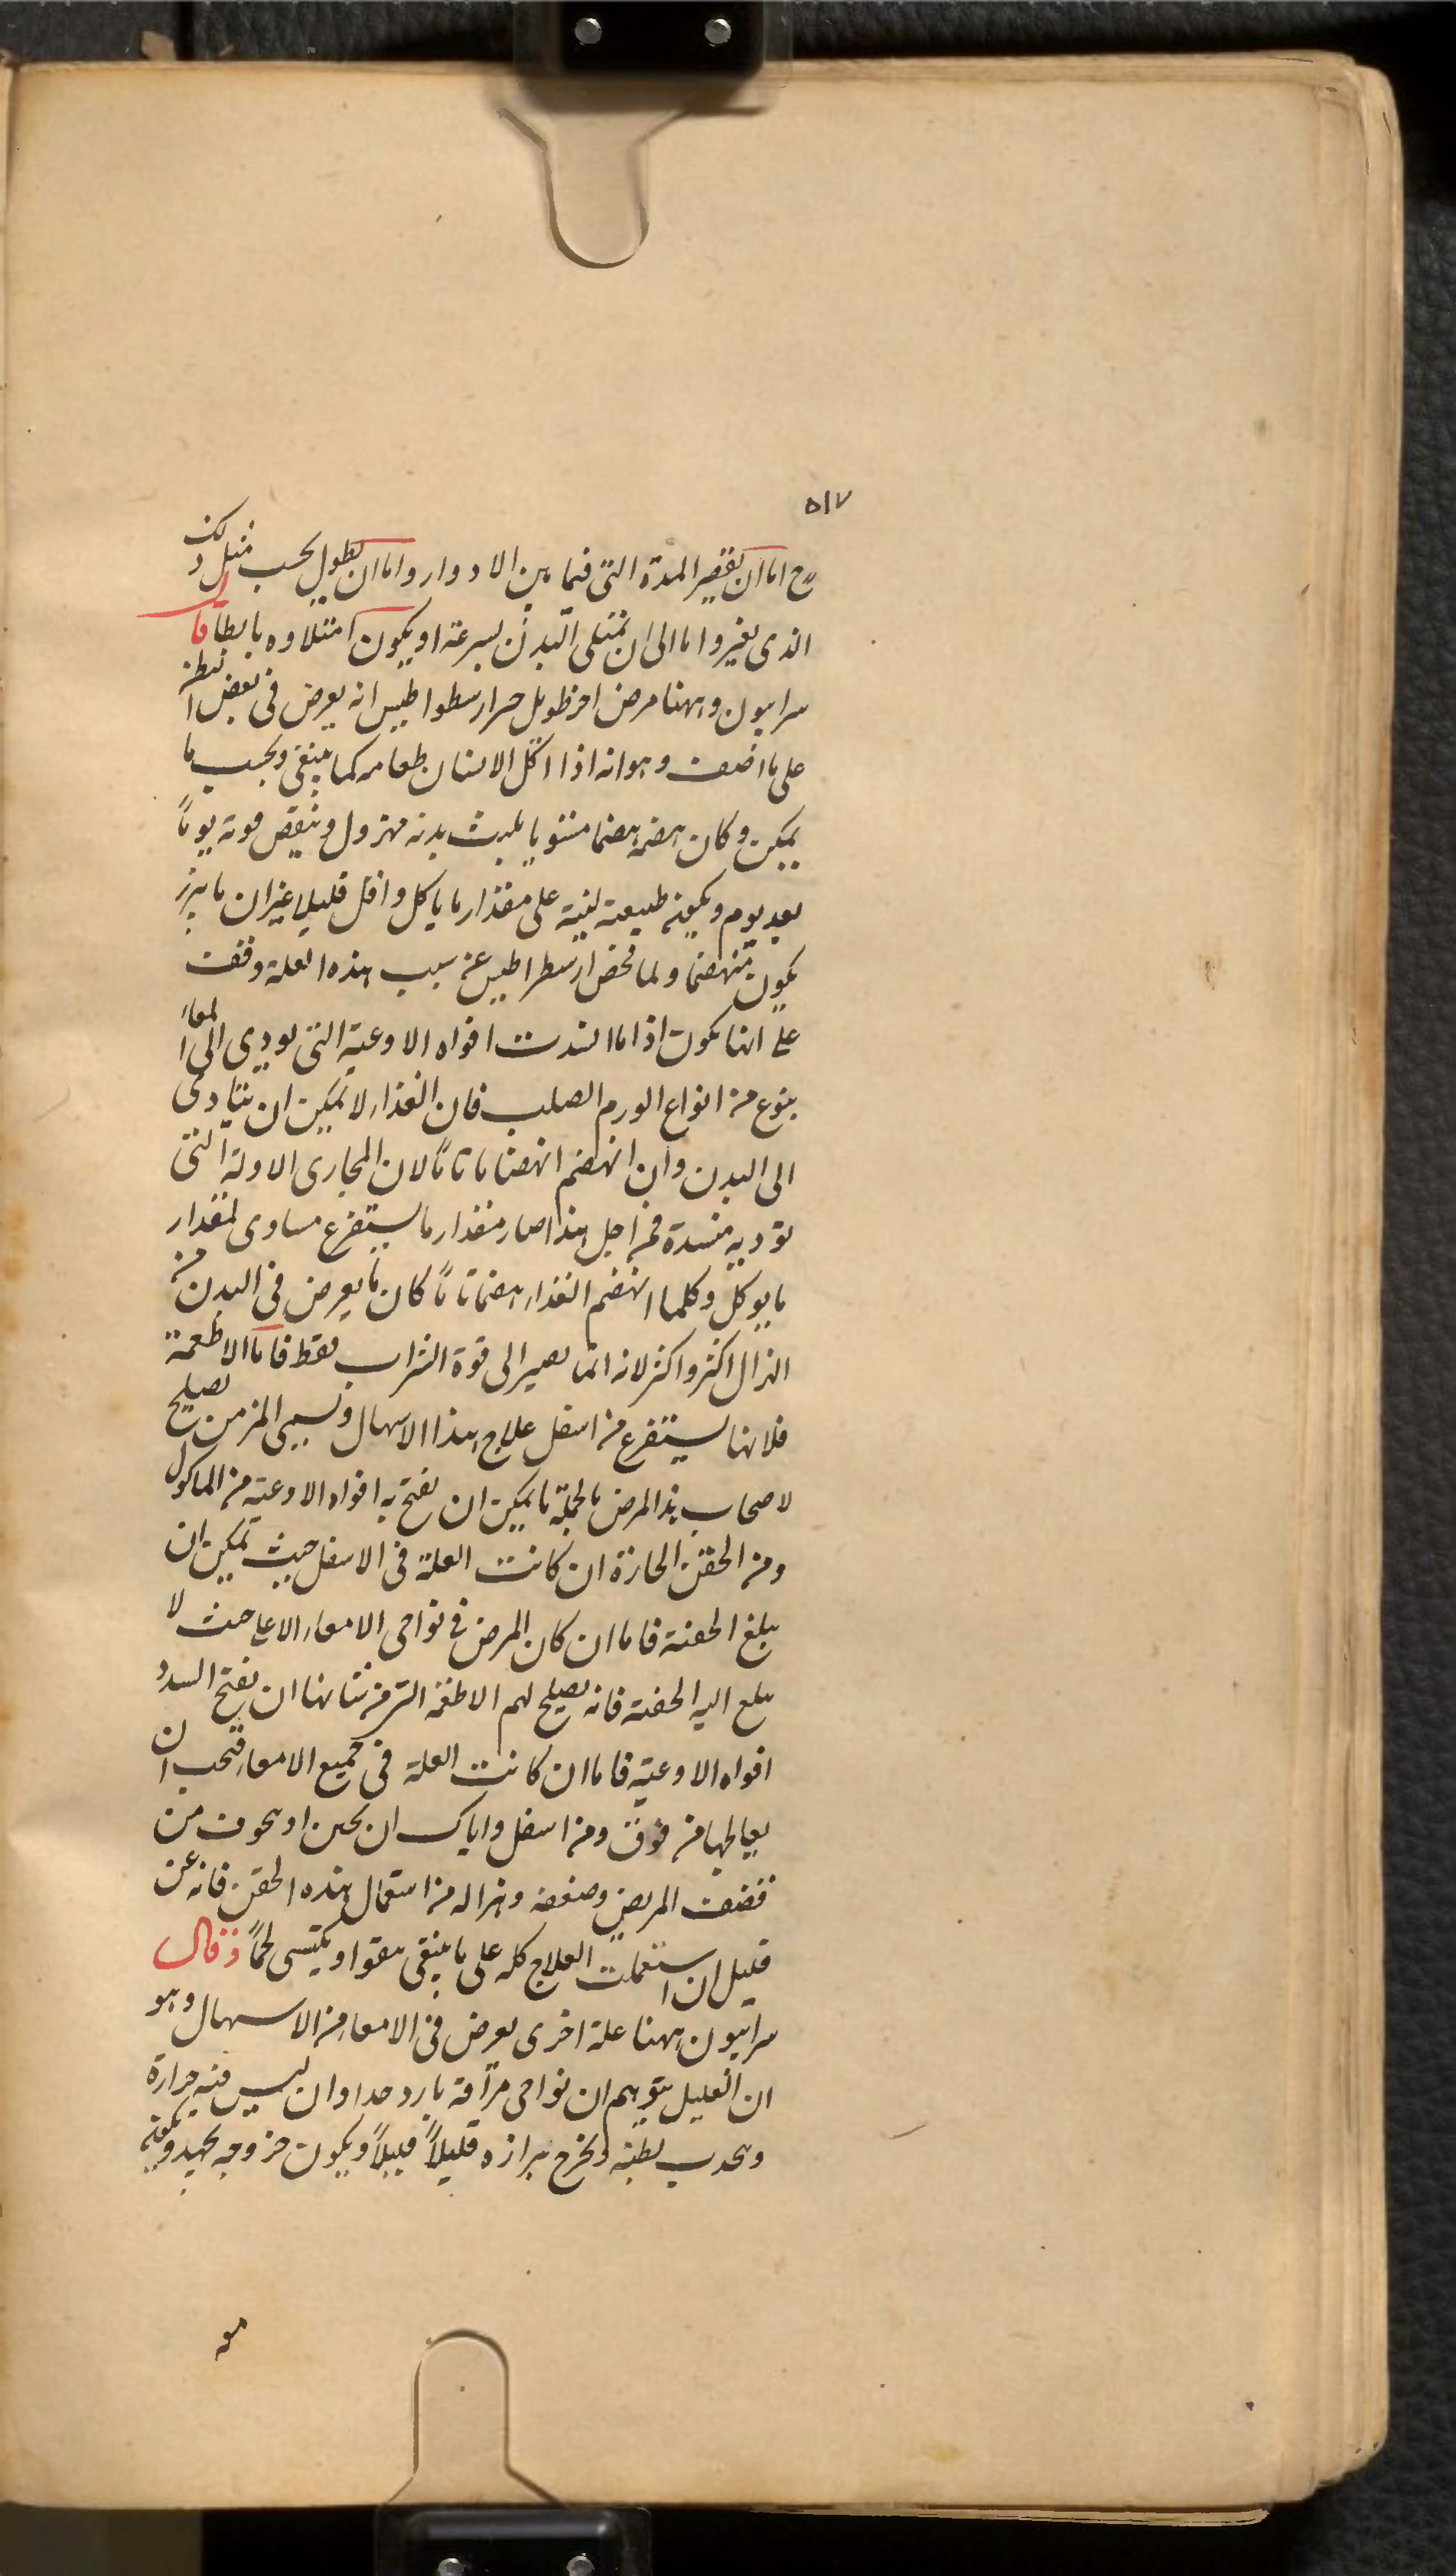 ٥١٧
اما ان يقصر المدة التى فيما بين الادوار واما ان يطول بحسب مثل ذلك
الذى يغير واما الى ان تمتلى البدن بسرعة او يكون امتلاوه بابطا قال
سرابيون وههنا مرض اخر طويل ارسطواطيس انه يعرض فى بعض البطن
على ما اصف وهو انه اذا اكل الانسان طعامه كما ينبغى وبحسب ما
يمكن وكان هضمه هضما مستويا يلبث بدنه مهزول وينقص قوته يوماً
بعد يوم ويكون طبيعته لينة على مقدار ما ياكل واقل قليلا غير ان ما يبرز
يكون منهضما ولما فحص ارسطراطيس عن سبب هذه العلة وقف
على انها تكون اذا ما انسدت افواه الاوعية التى يودى الى المعاء
بنوع من انواع الورم الصلب فان الغذاء لا يمكن ان يتادى
الى البدن وان انهضم انهضاما تاماً لان المجارى الاولة التى
توديه منسدة فمن اجل هذا صار مقدار ما يستفرغ مساوى لمقدار
ما يوكل وكلما انهضم الغذاء هضما تاماً كان ما يعرض فى البدن من
الهزال اكثر واكثر لانه انما يصير الى قوة الشراب فقط فاما الاطعمة
فلانها يستفرغ من اسفل علاج هذا الاسهال ويسمى المزمن يصلح
لاصحاب هذا المرض بالجملة ما يمكن ان يفتح به افواه الاوعية من الماكول
ومن الحقن الحارة ان كانت العلة فى الاسفل حيث يمكن ان
يبلغ الحقنة فاما ان كان المرض فى نواحى الامعاء الاعلى حيث لا
يبلغ اليه الحقنة فانه يصلح لهم الاطعمة التى من شانها ان يفتح السدد
افواه الاوعية فاما ان كانت العلة فى جميع الامعاء فيجب ان
يعالجها من فوق ومن اسفل واياك ان يجبن او يخوف من
قضف المريض وضعفه وهزاله من استعمال هذه الحقن فانه عن
قليل ان استعملت العلاج كله على ما ينبغى يقوا ويكتسى لحماً وقال
سرابيون ههنا علة اخرى يعرض فى الامعاء من الاسهال وهو
ان العليل يتوهم ان نواحى مراقه بارد جدا وان ليس فيه حرارة
ويجذب بطنه ويخرج برازه قليلاً قليلاً ويكون خروجه بجهد ويكون